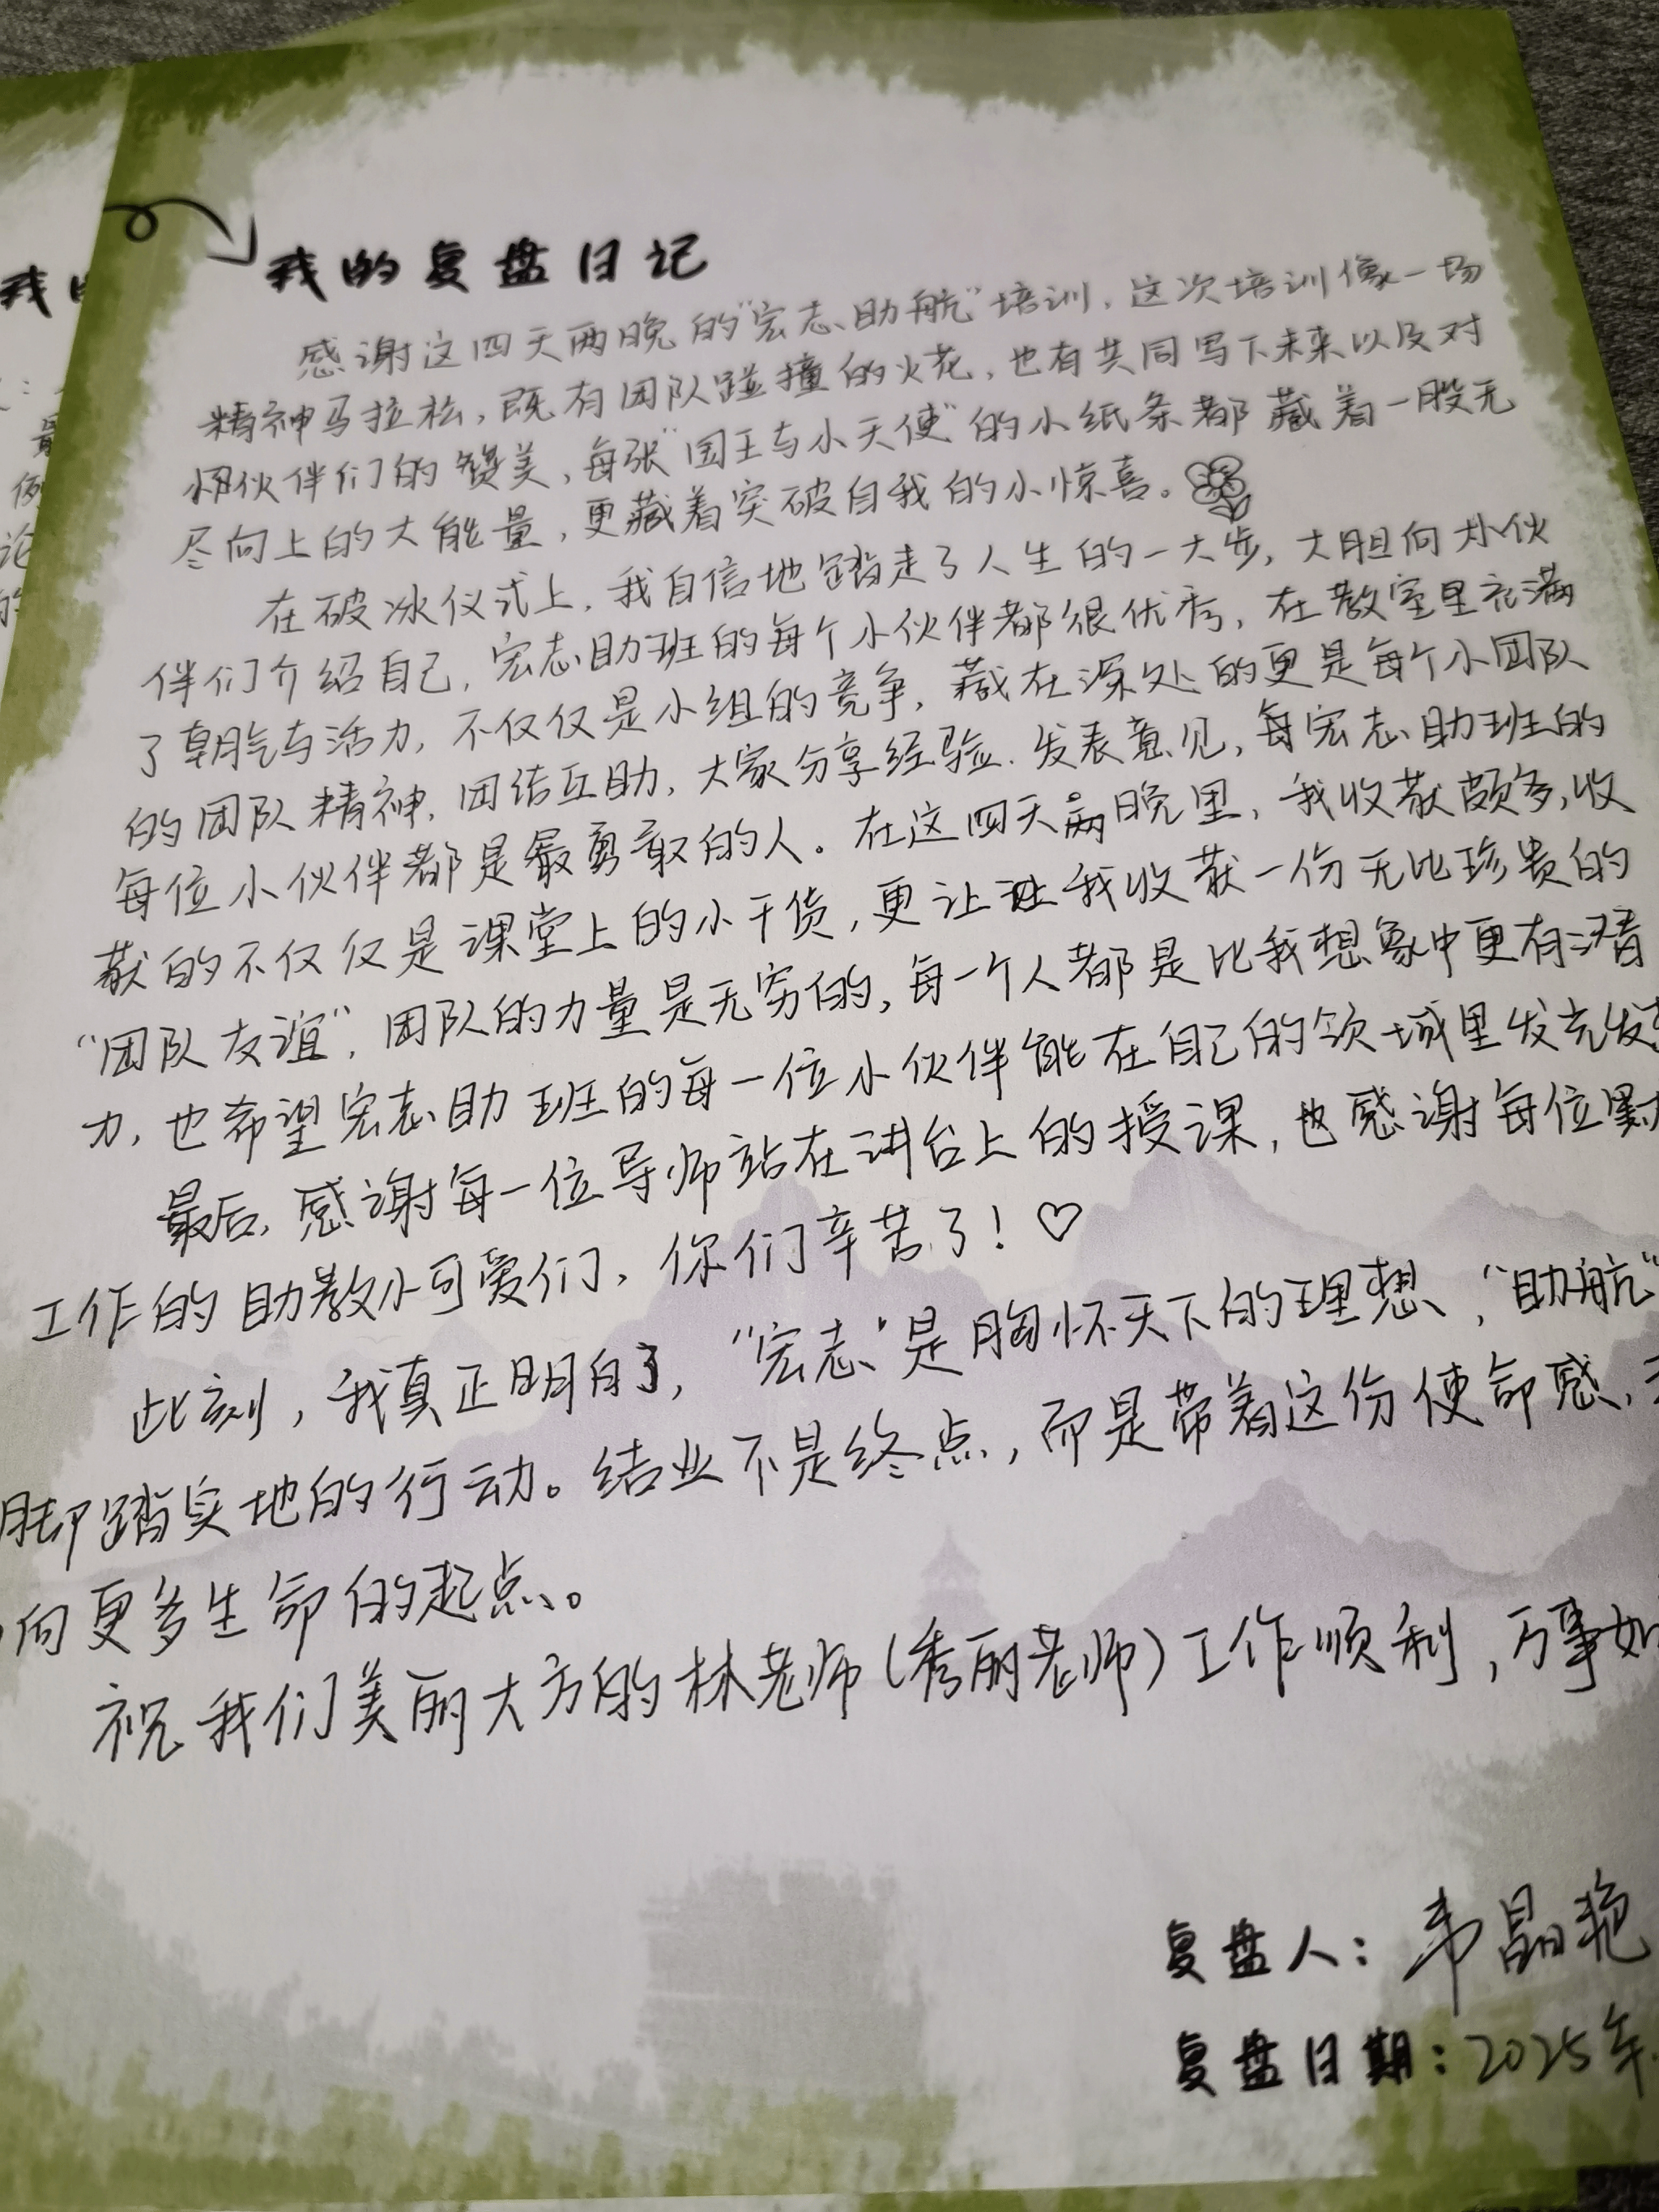 我的复盘日记
感谢这四天两晚的“宏志助航”培训，这次培训像一场
精神马拉松，既有团队碰撞的火花，也有共同写下未来以及对
伙伴们的赞美，每张“国王与小天使”的小纸条都藏着一股无
尽向上的大能量，更藏着突破自我的小惊喜。
在破冰仪式上，我自信地踏走了人生的一大步，大胆向小伙
伴们介绍自己，宏志助班的每个小伙伴都很优秀，在教室里充满
了朝气与活力，不仅仅是小组的竞争，藏在深处的更是每个小团队
的团队精神，团结互助，大家分享经验、发表意见，每宏志助班的
每位小伙伴都是最勇敢的人。在这四天两晚里，我收获颇多，收
获的不仅仅是课堂上的小干货，更让我收获一份无比珍贵的
“团队友谊”，团队的力量是无穷的，每一个人都是比我想象中更有潜
力，也希望宏志助班的每一位小伙伴能在自己的领域里发光发
最后，感谢每一位导师站在讲台上的授课，也感谢每位默
工作的助教小可爱们，你们辛苦了！♡
此刻，我真正明白了，“宏志”是胸怀天下的理想，“助航”
脚踏实地的行动。结业不是终点，而是带着这份使命感，
向更多生命的起点。
祝我们美丽大方的林老师（秀丽老师）工作顺利，万事如
复盘人：韦晶艳
复盘日期：2025年
我
最
例
论
的